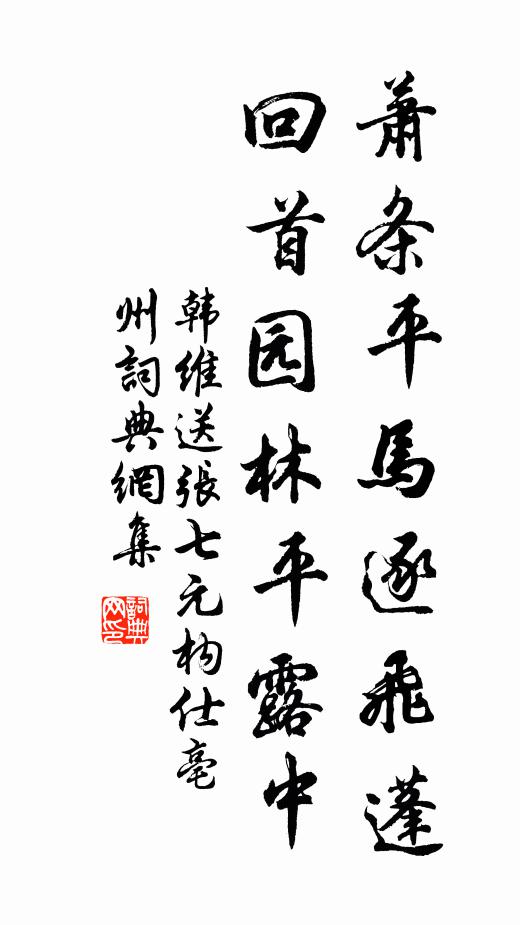 蕭条平馬逐飛蓬
回首园林平露中
韩維送張七元构仕亳
州詞典網集
詞典网印